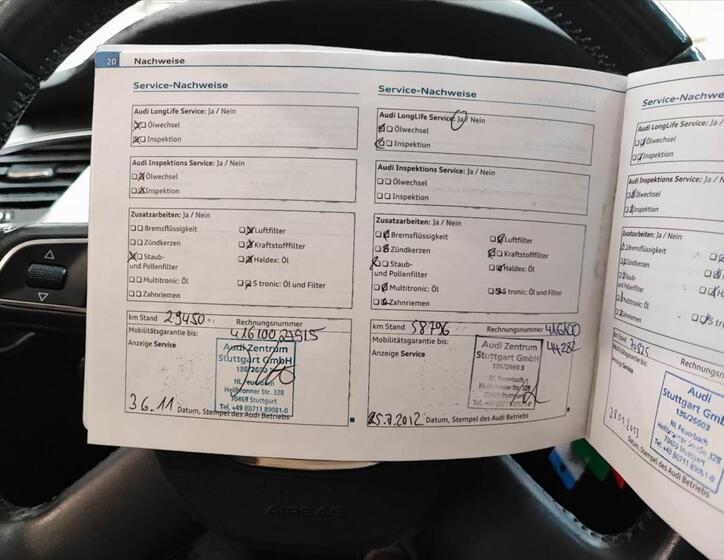 20 Nachweise
Service-Nachweise
Audi LongLife Service: Ja / Nein
Ölwechsel
Inspektion
Audi Inspektions Service: Ja / Nein
Ölwechsel
Inspektion
Zusatzarbeiten: Ja / Nein
Bremsflüssigkeit Luftfilter
Zündkerzen Kraftstofffilter
Staub- Haldex: Öl
und Pollenfilter
Multitronic: Öl S tronic: Öl und Filter
Zahnriemen
km Stand 29450 Rechnungsnummer
Mobilitätsgarantie bis:
Anzeige Service
Audi Zentrum
Stuttgart GmbH
NL Feuerbach
Heilbronner Str. 328
70469 Stuttgart
Tel. +49 (0)711 89081-0
3 6.11 Datum, Stempel des Audi Betriebs
Service-Nachweise
Audi LongLife Service: Ja / Nein
Ölwechsel
Inspektion
Audi Inspektions Service: Ja / Nein
Ölwechsel
Inspektion
Zusatzarbeiten: Ja / Nein
Bremsflüssigkeit Luftfilter
Zündkerzen Kraftstofffilter
Staub- Haldex: Öl
und Pollenfilter
Multitronic: Öl S tronic: Öl und Filter
Zahnriemen
km Stand 58796 Rechnungsnummer 416100
Mobilitätsgarantie bis: 44282
Anzeige Service
Audi Zentrum
Stuttgart GmbH
NL Feuerbach
Heilbronner Str. 328
Tel. +49 (0)711 89081-0
25.7.2012 Datum, Stempel des Audi Betriebs
Service-Nachweise
Audi LongLife Service: Ja / Nein
Ölwechsel
Inspektion
Audi Inspektions Service: Ja / Nein
Ölwechsel
Inspektion
Zusatzarbeiten: Ja / Nein
Bremsflüssigkeit
Zündkerzen
Staub-
und Pollenfilter
Multitronic: Öl
Zahnriemen
km Stand
Audi
Stuttgart GmbH
136/26603
NL Feuerbach
Heilbronner Straße 328
70469 Stuttgart
Tel. +49 (0)711 89081-0
Datum, Stempel des Audi Betriebs
AIRBAG